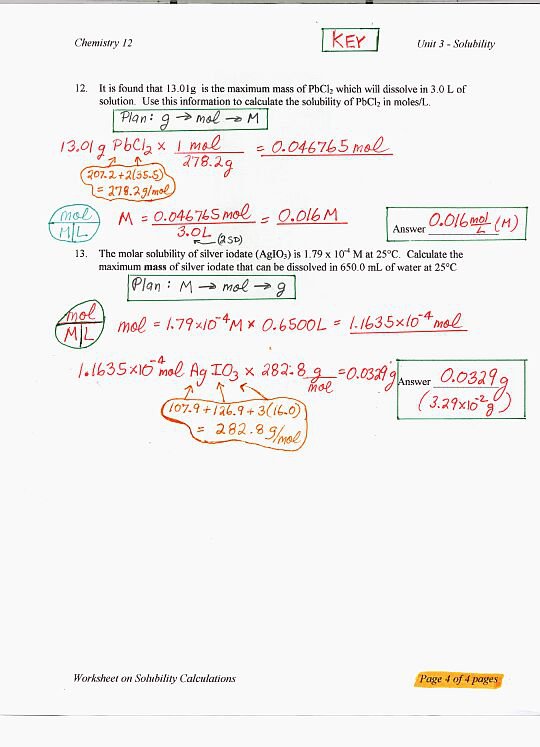 Chemistry 12 KEY Unit 3 - Solubility
12. It is found that 13.01g is the maximum mass of PbCl₂ which will dissolve in 3.0 L of
solution. Use this information to calculate the solubility of PbCl₂ in moles/L.
Plan: g → mol → M
13.01 g PbCl₂ × 1 mol / 278.2g = 0.046765 mol
207.2 + 2(35.5)
= 278.2 g/mol
mol
M L
M = 0.046765 mol / 3.0L = 0.016 M
(2SD)
Answer 0.016 mol/L (M)
13. The molar solubility of silver iodate (AgIO₃) is 1.79 x 10⁻⁴ M at 25°C. Calculate the
maximum mass of silver iodate that can be dissolved in 650.0 mL of water at 25°C
Plan: M → mol → g
mol
M L
mol = 1.79×10⁻⁴M × 0.6500L = 1.1635×10⁻⁴ mol
1.1635×10⁻⁴ mol AgIO₃ × 282.8 g/mol = 0.0329 g
107.9 + 126.9 + 3(16.0)
= 282.8 g/mol
Answer 0.0329 g
(3.29×10⁻² g)
Worksheet on Solubility Calculations Page 4 of 4 pages